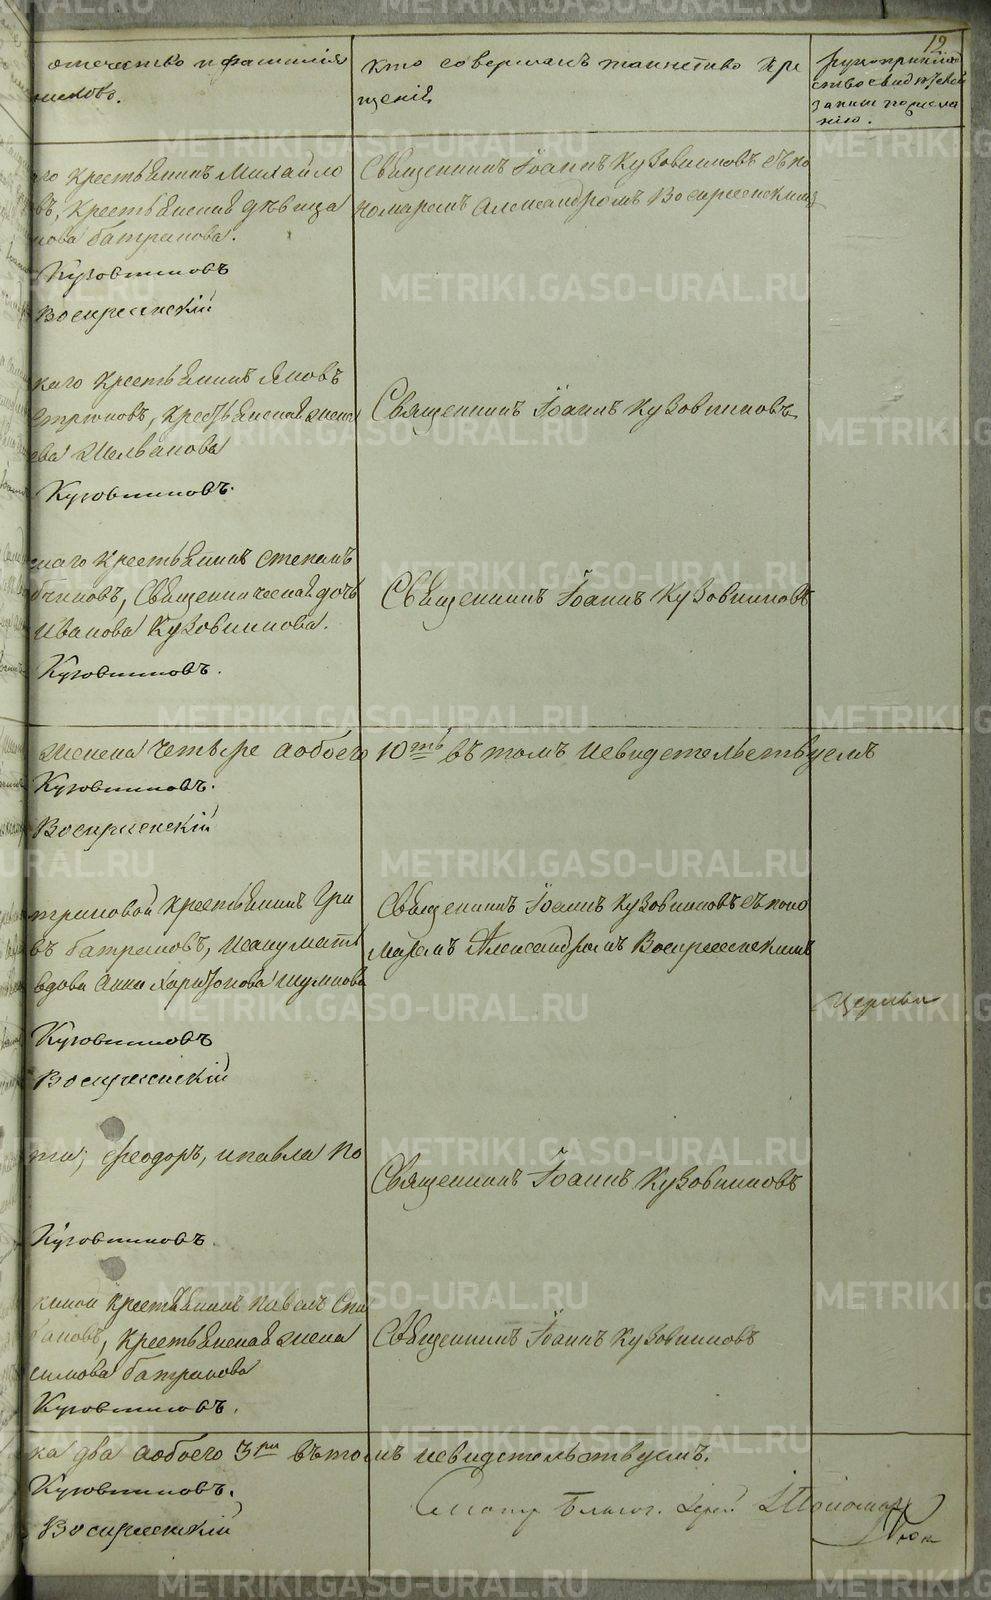 12
отчество и фамилія
никовъ.
Кто совершалъ таинство кре
щенія
рукоприклад
ство свидѣтелей
записи по жела
нію.
го Крестьянинъ Михайло
въ, Крестьянская дѣвица
нова Батракова.
Кузовниковъ
Воскресенскій
Священникъ Іоаннъ Кузовниковъ съ по
номаремъ Александромъ Воскресенскимъ
каго Крестьянинъ Яковъ
Крестьянская жена
ева
Кузовниковъ.
Священникъ Іоаннъ Кузовниковъ
скаго Крестьянинъ Степанъ
Священническая дочь
Иванова Кузовникова.
Кузовниковъ.
Священникъ Іоаннъ Кузовниковъ
Женска четыре а обоего 10ть въ томъ и свидетельствуемъ
Кузовниковъ.
Воскресенскій
Крестьянинъ Гри
въ Батраковъ,
вдова Анна Харитонова Шумкова
Кузовниковъ
Воскресенскій
Священникъ Іоаннъ Кузовниковъ съ поно
маремъ Александромъ Воскресенскимъ
Церкви
Феодоръ, и Павла По
Кузовниковъ
Священникъ Іоаннъ Кузовниковъ
Крестьянинъ Павелъ Спи
Крестьянская жена
симова Батракова
Кузовниковъ.
Священникъ Іоаннъ Кузовниковъ
ка два а обоего 3ри въ томъ и свидетельствуемъ.
Кузовниковъ.
Воскресенскій
Смотр. Благоч. Іерей І Пономар
METRIKI.GASO-URAL.RU